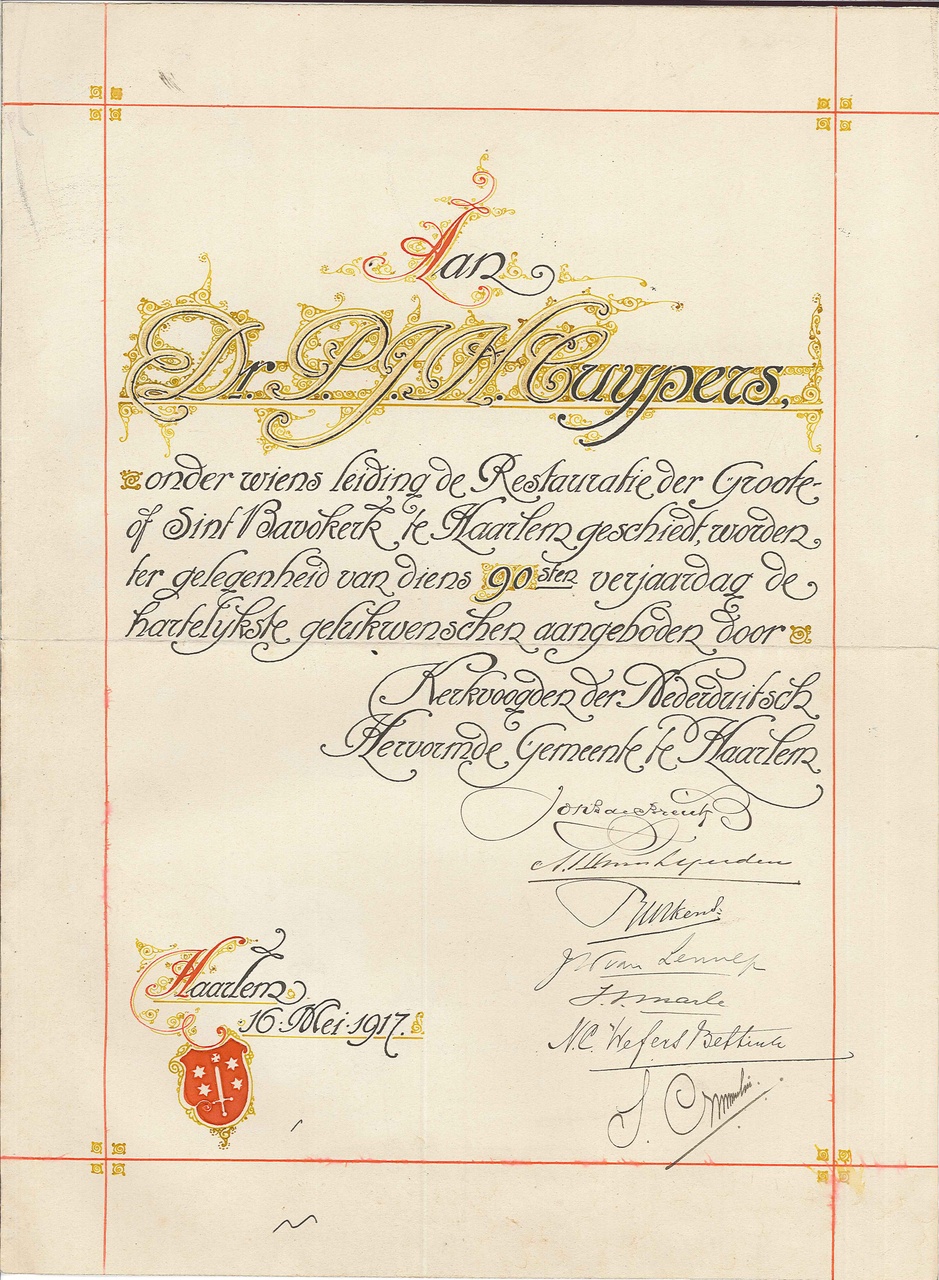 Aan
Dr. P.J.H. Cuypers,
onder wiens leiding de Restauratie der Groote-
of Sint Bavokerk te Haarlem geschiedt, worden
ter gelegenheid van diens 90sten verjaardag de
hartelykste gelukwenschen aangeboden door
Kerkvoogden der Nederduitsch
Hervormde Gemeente te Haarlem
van Lennep
N.C. Wefers Bettink
Haarlem
16 Mei 1917.